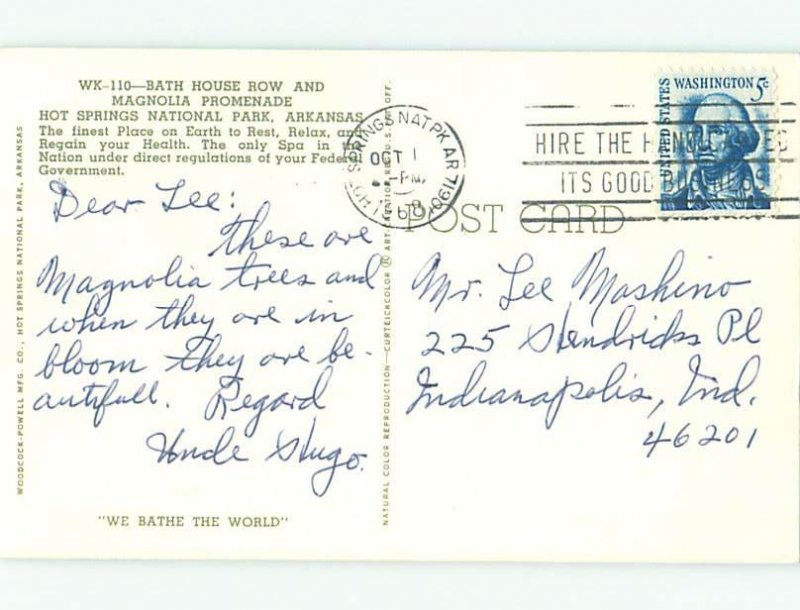 WK-110—BATH HOUSE ROW AND
MAGNOLIA PROMENADE
HOT SPRINGS NATIONAL PARK, ARKANSAS
The finest Place on Earth to Rest, Relax, and
Regain your Health. The only Spa in the
Nation under direct regulations of your Federal
Government.
Dear Lee:
These are
Magnolia trees and
when they are in
bloom they are be-
autifull. Regard
Uncle Hugo.
"WE BATHE THE WORLD"
WOODCOCK-POWELL MFG. CO., HOT SPRINGS NATIONAL PARK, ARKANSAS
NATURAL COLOR REPRODUCTION—CURTEICHCOLOR ® ART-CREATION REG. U.S. PAT. OFF.
HOT SPRINGS NAT PK ARK
OCT 1
PM
1968
UNITED STATES
WASHINGTON 5c
HIRE THE
ITS GOOD BUSINESS
POST CARD
Mr. Lee Mashino
225 Hendricks Pl
Indianapolis, Ind.
46201